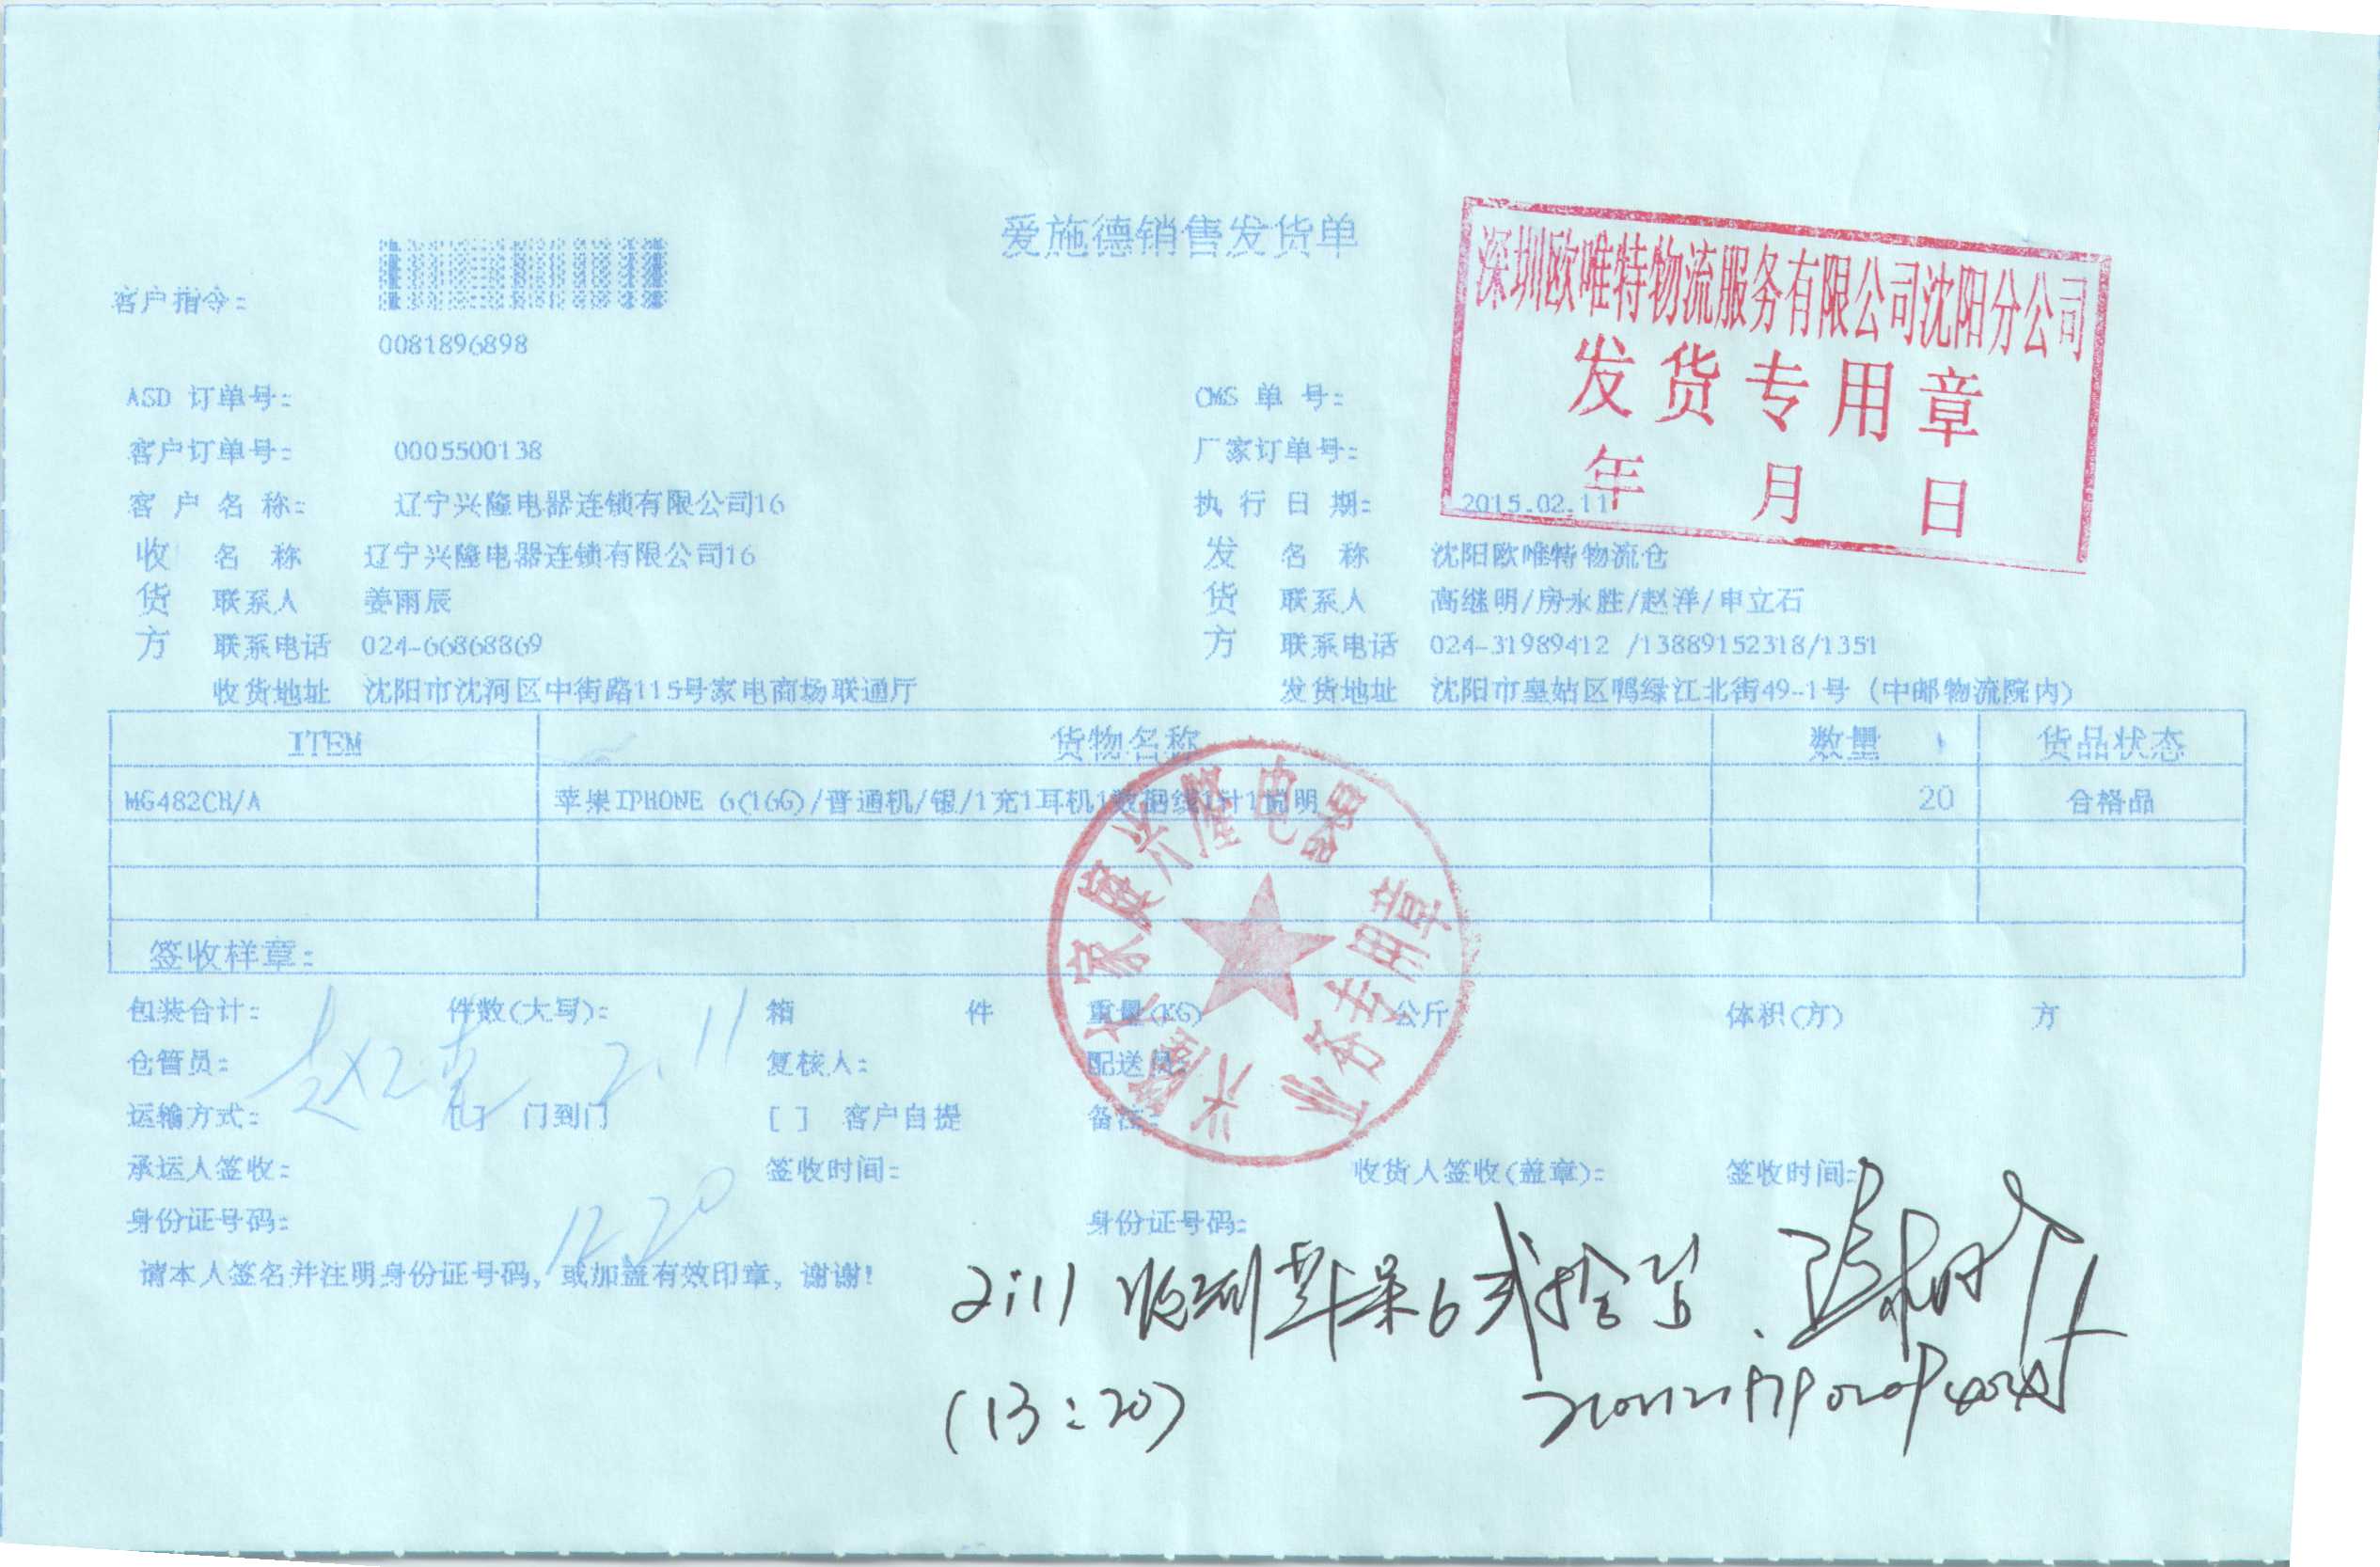 爱施德销售发货单
深圳欧唯特物流服务有限公司沈阳分公司
发货专用章
年 月 日
客户指令:
0081896898
ASD 订单号:
CMS 单 号:
客户订单号: 0005500138
厂家订单号:
客 户 名 称: 辽宁兴隆电器连锁有限公司16
执 行 日 期: 2015.02.11
收货方
名 称 辽宁兴隆电器连锁有限公司16
联系人 姜雨辰
联系电话 024-66868869
收货地址 沈阳市沈河区中街路115号家电商场联通厅
发货方
名 称 沈阳欧唯特物流仓
联系人 高继明/房永胜/赵洋/申立石
联系电话 024-31989412 /13889152318/1351
发货地址 沈阳市皇姑区鸭绿江北街49-1号 (中邮物流院内)
ITEM 货物名称 数量 货品状态
MG482CH/A 苹果IPHONE 6(16G)/普通机/银/1充1耳机1数据线1针1说明 20 合格品
兴隆大家庭兴隆电器
业务专用章
签收样章:
包装合计: 件数(大写): 箱 件 重量(KG) 公斤 体积(方) 方
仓管员: 2.11 复核人: 配送员:
运输方式: [ ] 门到门 [ ] 客户自提 备注:
承运人签收: 签收时间: 收货人签收(盖章): 签收时间:
身份证号码: 12.20 身份证号码:
请本人签名并注明身份证号码, 或加盖有效印章, 谢谢!
2.11 收到苹果6贰拾台.
(13:20)